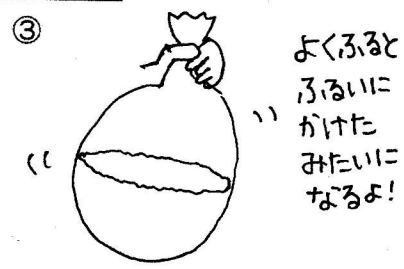 ③
よくふると
ふるいに
かけた
みたいに
なるよ!